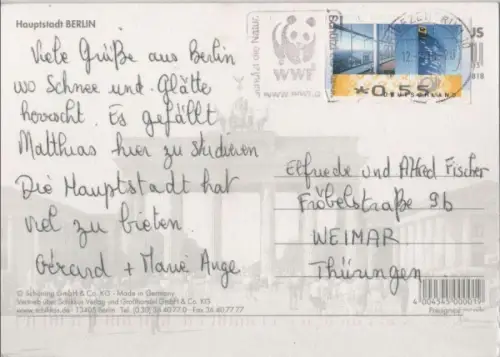 Hauptstadt BERLIN
Viele Grüße aus Berlin
wo Schnee und Glätte
herrscht. Es gefällt
Matthias hier zu studieren
Die Hauptstadt hat
viel zu bieten.
Gérard + Marie Ange
schützt die Natur.
WWF
*0,55
DEUTSCHLAND
Elfriede und Alfred Fischer
Fröbelstraße 9b
WEIMAR
Thüringen
© Schöning GmbH & Co. KG - Made in Germany
Vertrieb über Schikkus Verlag und Großhandel GmbH & Co. KG
13405 Berlin Tel. (0,30) 36 40 77 0 - Fax 36 40 77 77
4 004545 000019